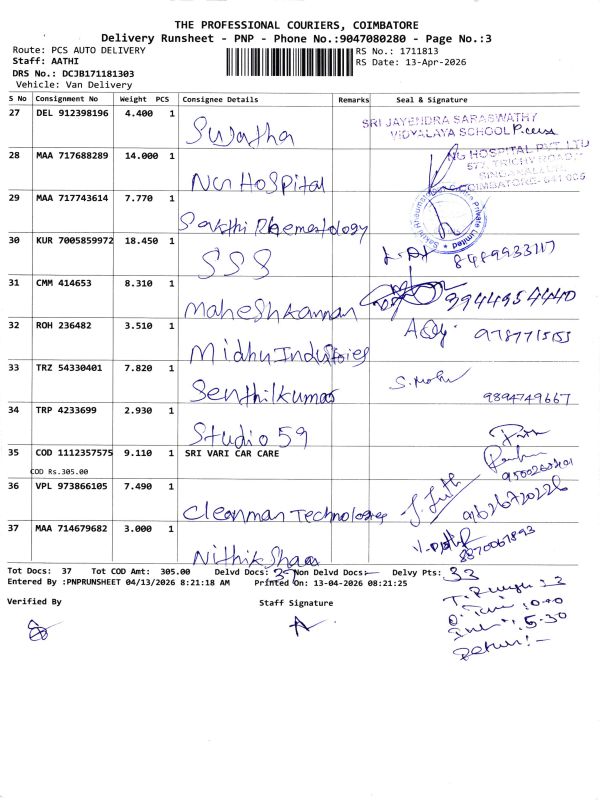 THE PROFESSIONAL COURIERS, COIMBATORE
Delivery Runsheet - PNP - Phone No.:9047080280 - Page No.:3
Route: PCS AUTO DELIVERY
RS No.: 1711813
Staff: AATHI
RS Date: 13-Apr-2026
DRS No.: DCJB171181303
Vehicle: Van Delivery
S No Consignment No Weight PCS Consignee Details Remarks Seal & Signature
27 DEL 912398196 4.400 1 Swatha
SRI JAYENDRA SARASWATHY
VIDYALAYA SCHOOL
28 MAA 717688289 14.000 1 NG Hospital
NG HOSPITAL PVT. LTD
577, TRICHY ROAD
SINGANALLUR
COIMBATORE-641 005
29 MAA 717743614 7.770 1 Sakthi Rheumatology
30 KUR 7005859972 18.450 1 SSS
31 CMM 414653 8.310 1 Maheshkannan
32 ROH 236482 3.510 1 Midhu Industries
33 TRZ 54330401 7.820 1 Senthilkumar
9894749667
34 TRP 4233699 2.930 1 Studio 59
35 COD 1112357575 9.110 1 SRI VARI CAR CARE
COD Rs.305.00
36 VPL 973866105 7.490 1 Cleanman Technologies
37 MAA 714679682 3.000 1
Tot Docs: 37 Tot COD Amt: 305.00 Delvd Docs: Non Delvd Docs: Delvy Pts: 33
Entered By :PNPRUNSHEET 04/13/2026 8:21:18 AM Printed On: 13-04-2026 08:21:25
Verified By Staff Signature